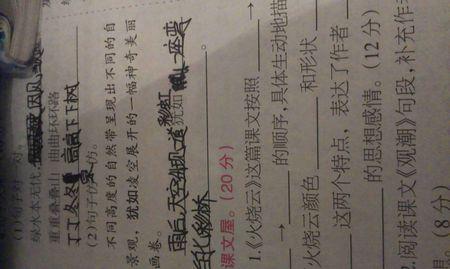 (1)句子对对。
绿水本无忧,因风
重重叠叠山 曲曲环环路
丁丁冬冬 高高下下树
(2)句子仿写坊。
不同高度的自然带呈现出不同的自
景观,犹如凌空展开的一幅神奇美丽
画卷。
雨后,天空出现一道彩虹 犹如 一座弯
七彩桥。
课文屋。(20分)
1.《火烧云》这篇课文按照 →
→ 的顺序,具体生动地描
火烧云颜色 和形状
这两个特点,表达了作者
的思想感情。(12分)
.阅读课文《观潮》句段,补充作
(8分)